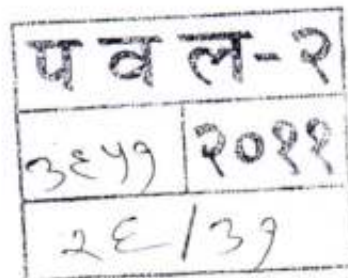 प व ल - २
३६५१ २०११
२६/३१